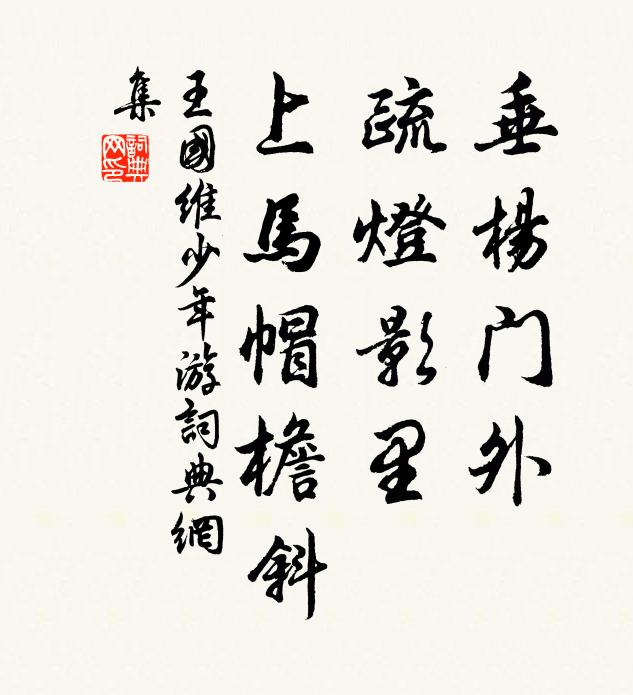 垂楊门外
疏燈影里
上馬帽檐斜
王國維少年游詞典網
集
詞典
网印